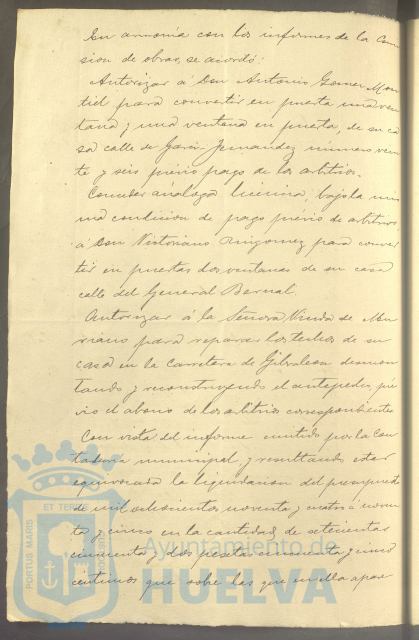 En armonía con los informes de la Comi
sion de obras, se acordó:
Autorizar á Don Antonio Gomez Mon
tiel para convertir en puerta una ven
tana y una ventana en puerta, de su ca
sa calle de Garci Fernandez número vein
te y seis previo pago de los arbitrios.
Conceder análoga licencia, bajo la mis
ma condicion de pago previo de arbitrios,
á Don Victoriano para conver
tir en puertas dos ventanas de su casa
calle del General Bernal
Autorizar á la Señora Viuda de Mu
riano para reparar los techos de su
casa en la Carretera de Gibraleon desmon
tando y reconstruyendo el antepecho, pré
vio el abono de los arbitrios correspondientes
Con vista del informe emitido por la Con
taduria municipal, y resultando estar
equivocada la liquidacion del presupuesto
de mil ochocientos noventa y cuatro á noven
ta y cinco en la cantidad de setecientas
cincuenta y dos pesetas cincuenta y cinco
céntimos que sobre las que en ella apare
PORTUS MARIS ET TERRAE
Ayuntamiento de
HUELVA